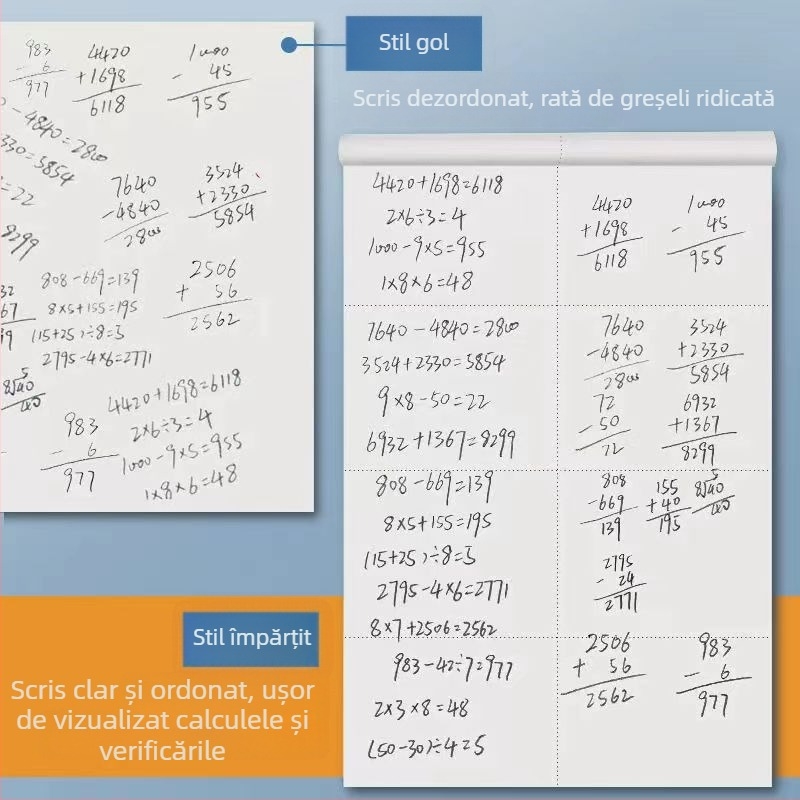 Stil gol
Scris dezordonat, rată de greșeli ridicată
983
- 6
977
4420
+1698
6118
1000
- 45
955
- 4840=2800
330=5854
=22
8299
7640
-4840
2800
3524
+2330
5854
808-669=139
8×5+155=195
(15+25)÷8=5
2795-4×6=2771
2506
+ 56
2562
32
67
9
5
8√40
40
983
- 6
977
4420+1698=6118
2×6÷3=4
1000-9×5=955
1×8×6=48
4420+1698=6118
2×6÷3=4
1000-9×5=955
1×8×6=48
4420
+1698
6118
1000
- 45
955
7640-4840=2800
3524+2330=5854
9×8-50=22
6932+1367=8299
7640
-4840
2800
3524
+2330
5854
72
-50
22
6932
+1367
8299
808-669=139
8×5+155=195
(15+25)÷8=5
2795-4×6=2771
8×7+2506=2562
808
-669
139
155
+40
195
5
8√40
40
2795
- 24
2771
983-42÷7=977
2×3×8=48
(50-30)÷4=5
2506
+ 56
2562
983
- 6
977
Stil împărțit
Scris clar și ordonat, ușor
de vizualizat calculele și
verificările